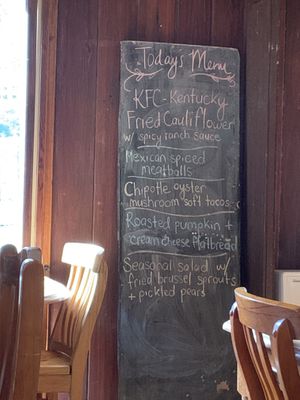 Todays Menu
KFC - Kentucky
Fried Cauliflower
w/ spicy ranch sauce
Mexican spiced
meatballs
Chipotle oyster
mushroom soft tacos
Roasted pumpkin +
creamcheese flatbread
Seasonal salad w/
fried brussel sprouts
+ pickled pears